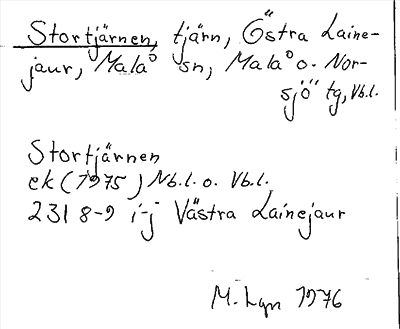 Stortjärnen, tjärn, Östra Laine-
jaur, Malå sn, Malå o. Nor-
sjö tg, Vb.l.
Stortjärnen
ek (1975) Nb.l. o. Vb.l.
231 8-9 i-j Västra Lainejaur
M. Lgn 1976